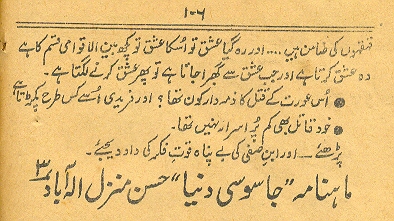 ۱۰۶
قہقہوں کی ضامن ہیں .... اور رہ گیا عشق تو اُسکا عشق تو کچھ بین الاقوامی قسم کا ہے
وہ عشق کرتا ہے اور جب عشق سے گھبرا جاتا ہے تو پھر عشق کرنے لگتا ہے۔
● اُس عورت کے قتل کا ذمہ دار کون تھا؟ اور فریدی اُسے کس طرح پکڑتا ہے
● خود قاتل بھی کم پُر اسرار نہیں تھا۔
پڑھئے ــــ اور ابن صفی کی بے پناہ قوتِ فکر کی داد دیجئے۔
ماہنامہ "جاسوسی دنیا" حسن منزل الہ آباد ۳